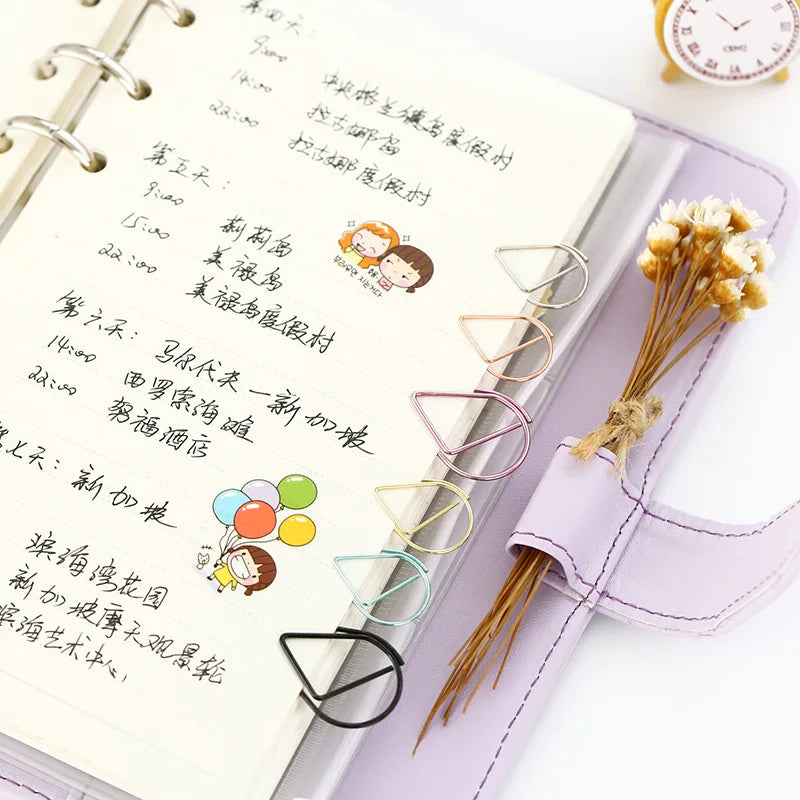 第四天：
9:00 中央格兰德岛度假村
14:00 拉古娜岛
22:00 拉古娜度假村
第五天：
9:00 莉莉岛
15:00 美禄岛
22:00 美禄岛度假村
第六天：马尔代夫—新加坡
14:00 西罗索海滩
22:00 努福酒店
第七天：新加坡
滨海湾花园
新加坡摩天观景轮
滨海艺术中心